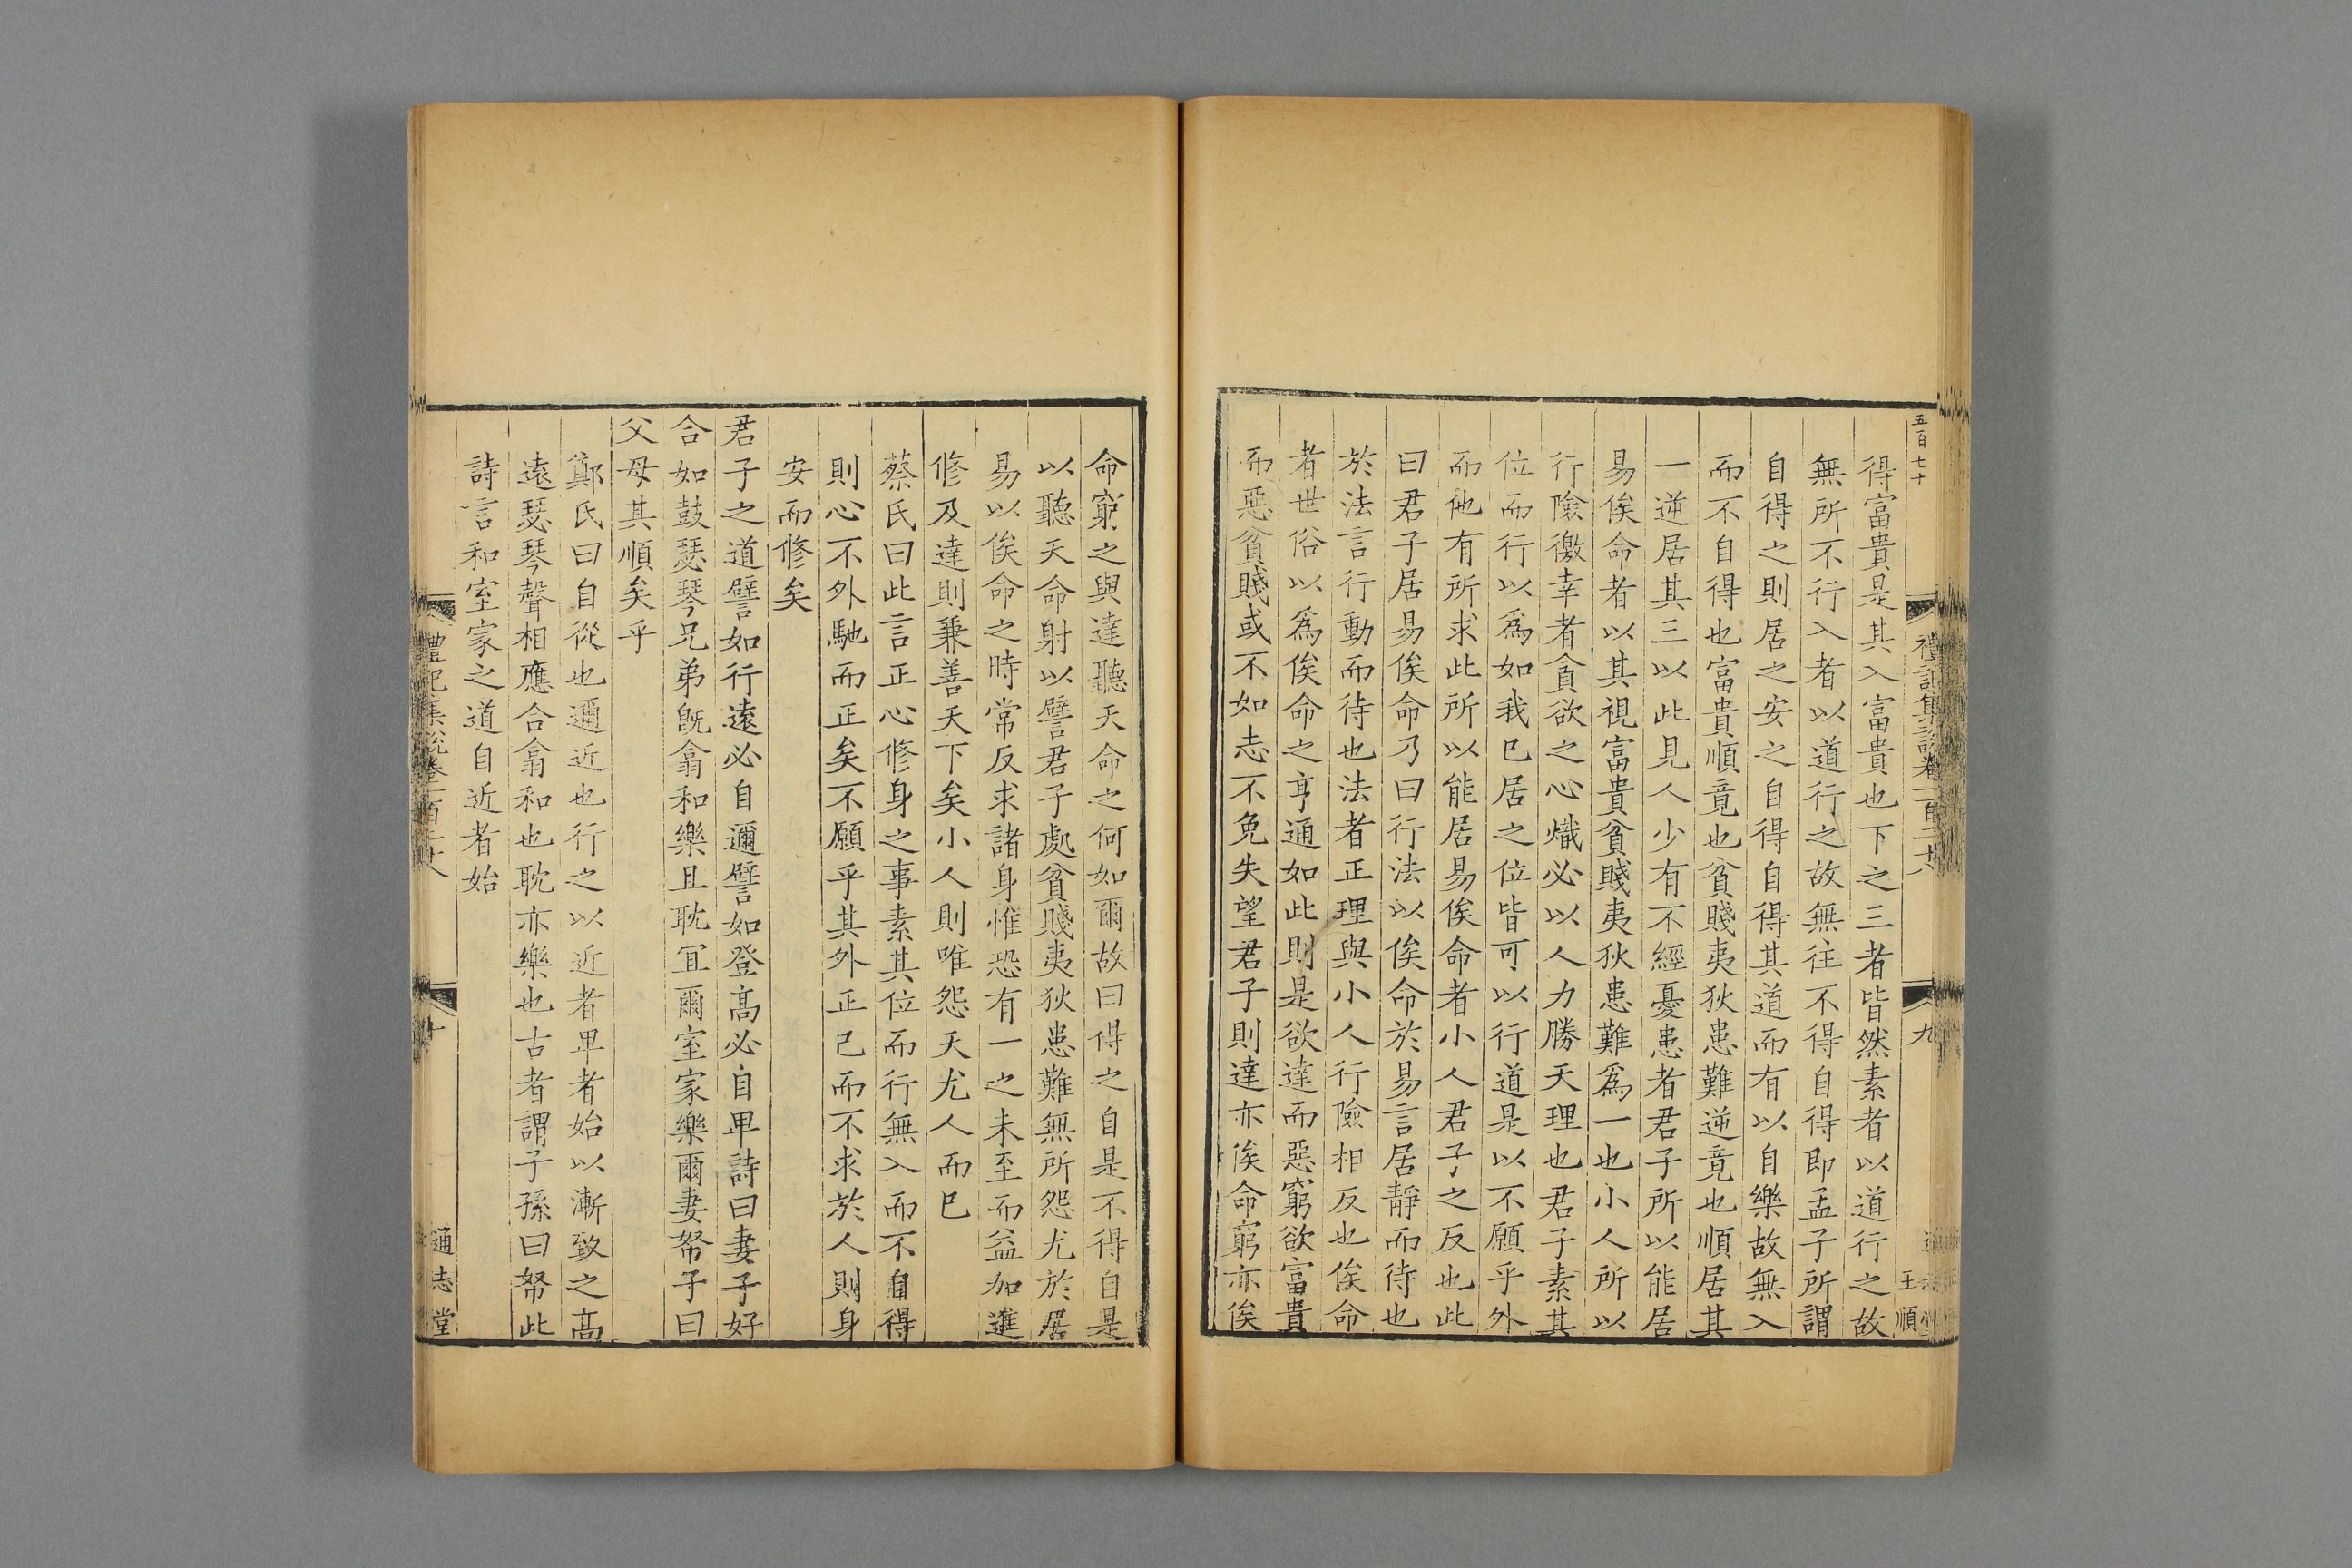 五百七十
禮記集說卷一百二十八
九
王順
得富貴是其入富貴也下之三者皆然素者以道行之故
無所不行入者以道行之故無往不得自得即孟子所謂
自得之則居之安之自得自得其道而有以自樂故無入
而不自得也富貴順竟也貧賤夷狄患難逆竟也順居其
一逆居其三以此見人少有不經憂患者君子所以能居
易俟命者以其視富貴貧賤夷狄患難爲一也小人所以
行險徼幸者貪欲之心熾必以人力勝天理也君子素其
位而行以爲如我已居之位皆可以行道是以不願乎外
而他有所求此所以能居易俟命者小人君子之反也此
曰君子居易俟命乃曰行法以俟命於易言居靜而待也
於法言行動而待也法者正理與小人行險相反也俟命
者世俗以爲俟命之亨通如此則是欲達而惡窮欲富貴
而惡貧賤或不如志不免失望君子則達亦俟命窮亦俟
命窮之與達聽天命之何如爾故曰得之自是不得自是
以聽天命射以譬君子處貧賤夷狄患難無所怨尤於居
易以俟命之時常反求諸身惟恐有一之未至而益加進
修及達則兼善天下矣小人則唯怨天尤人而已
蔡氏曰此言正心修身之事素其位而行無入而不自得
則心不外馳而正矣不願乎其外正己而不求於人則身
安而修矣
君子之道譬如行遠必自邇譬如登高必自卑詩曰妻子好
合如鼓瑟琴兄弟旣翕和樂且耽宜爾室家樂爾妻帑子曰
父母其順矣乎
鄭氏曰自從也邇近也行之以近者卑者始以漸致之高
遠瑟琴聲相應合翕和也耽亦樂也古者謂子孫曰帑此
詩言和室家之道自近者始
禮記集說卷一百二十八
十
通志堂